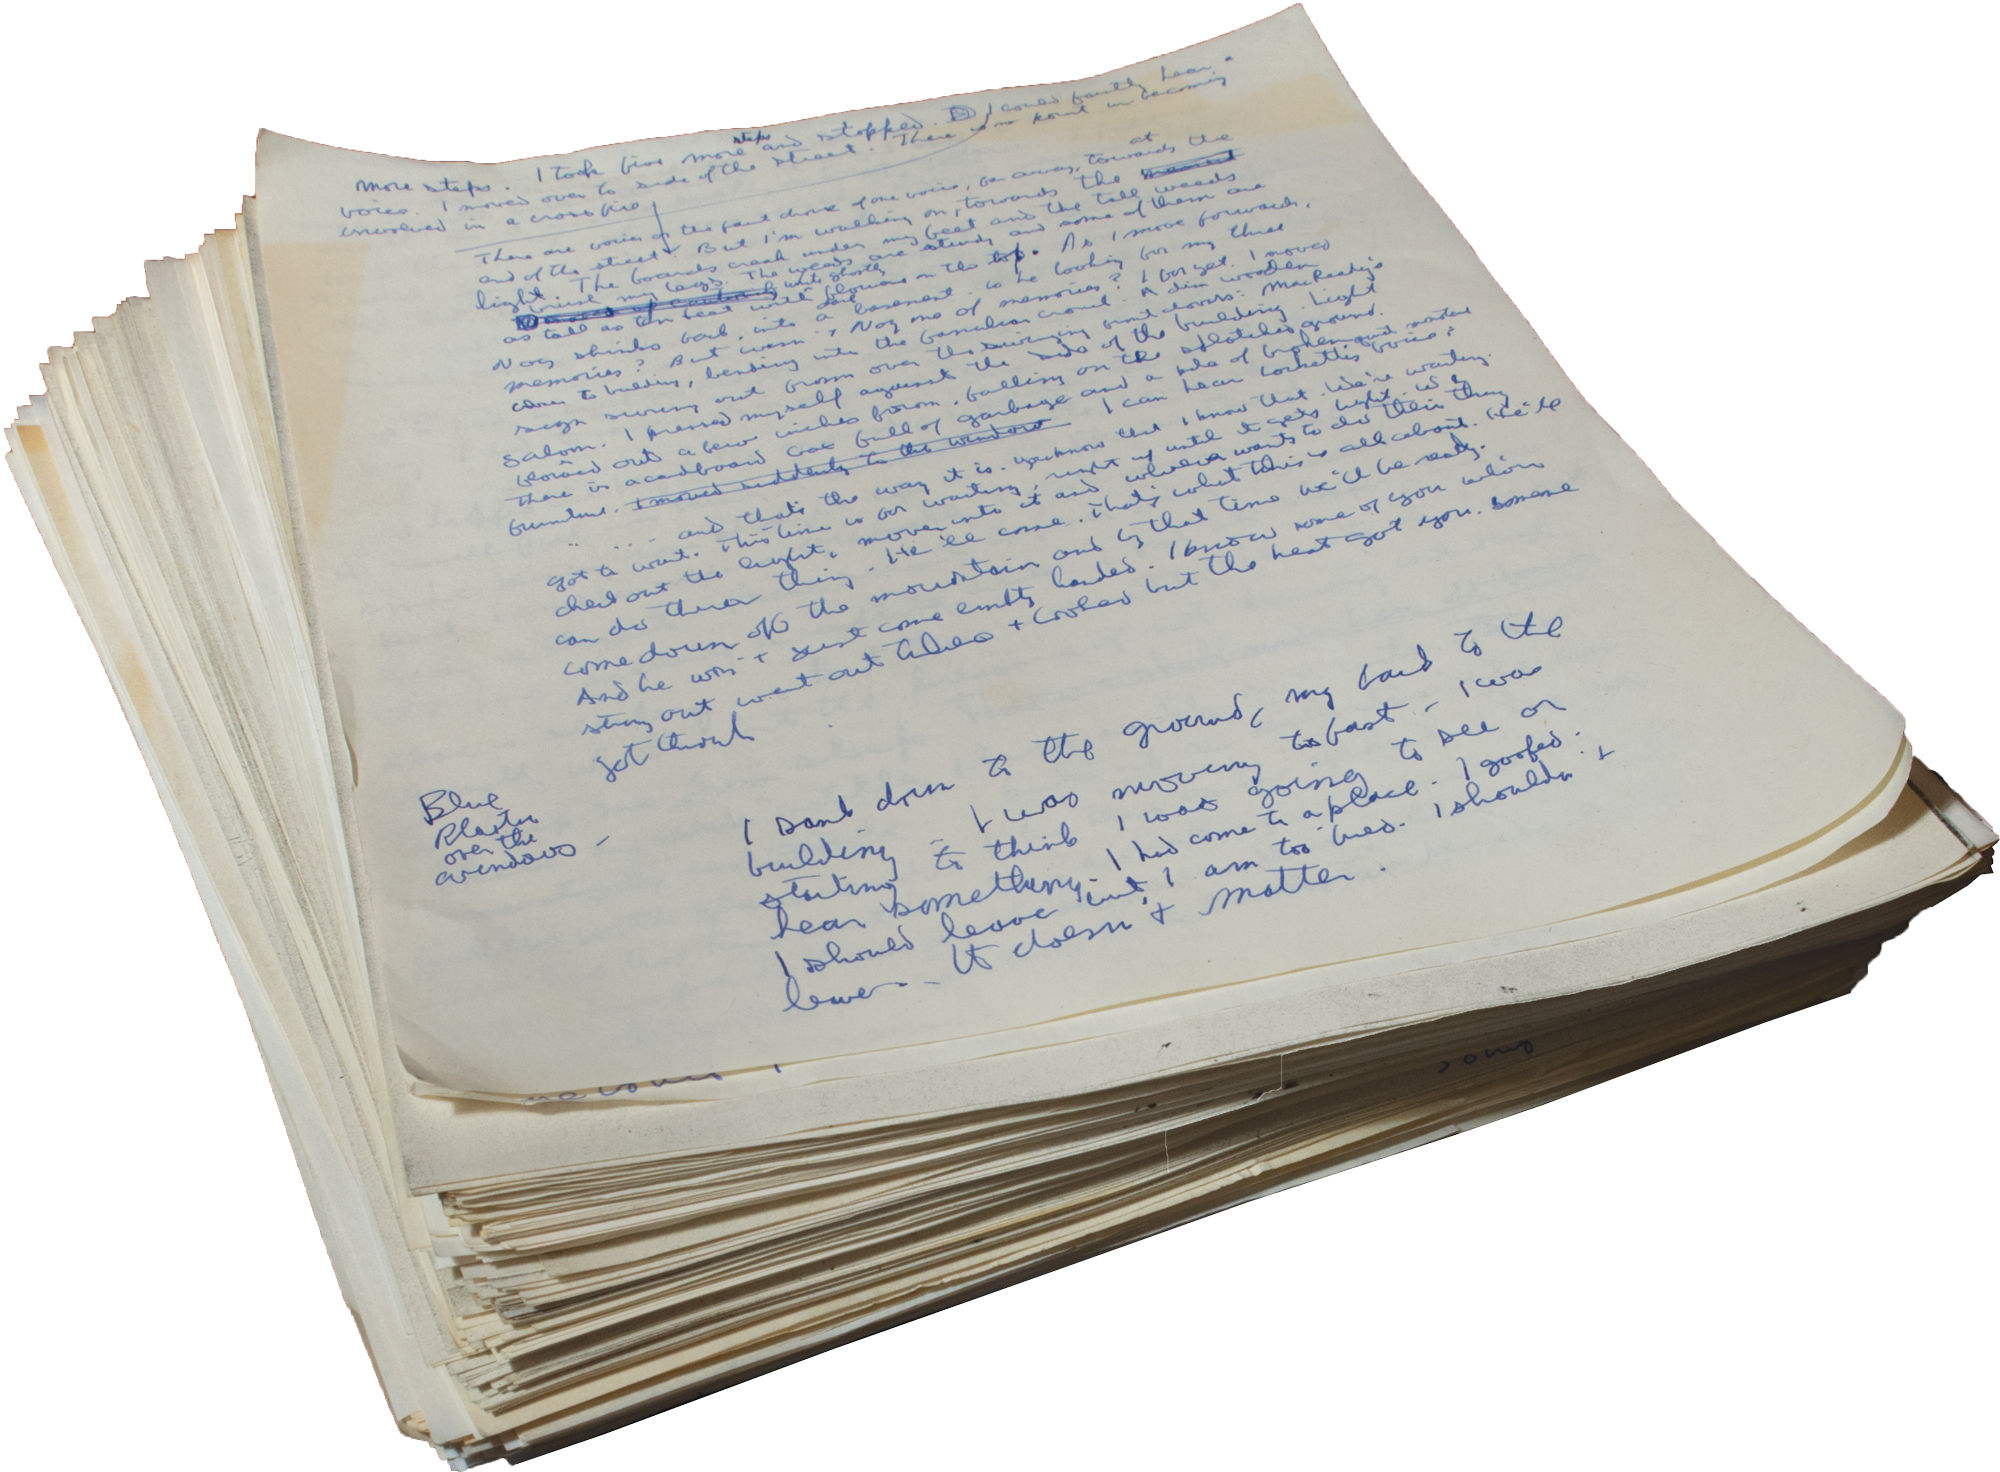 more steps. I took five more steps and stopped. I could faintly hear a
voice. I moved over to side of the street. There is no point in becoming
involved in a crossfire
There are voices or the faint drone of one voice, far away, towards at the
end of the street. But I'm walking on, towards the
light. The boards creak under my feet and the tall weeds
brush my legs. The weeds are sturdy and some of them are
as tall as ten feet with white ghostly flowers on the top. As I move forwards,
Nog slinks back into a basement. Is he looking for my three
memories? But wasn't Nog one of memories? I forget. I moved
closer to building, bending into the familiar crouch. A dim wooden
sign swung out from over the swinging front doors: MacReady's
Saloon. I pressed myself against the side of the building. Light
flowed out a few inches from, falling on the splotched ground.
There is a cardboard box full of garbage and a pile of broken
furniture. I moved suddenly to the window I can hear Lockett's voice:
"... and that's the way it is. You know that I know that. We're waiting.
got to wait. This time is for waiting, right up until it gets light. We
check out the light, move into it and whoever wants to do their thing
can do their thing. He'll come. That's what this is all about. He'll
come down off the mountain and by that time we'll be ready.
And he won't just come empty handed. I know some of you were
strung out went out and cooked but the heat got you. Someone
got through
I sank down to the ground, my back to the
building. I was moving too fast - I was
starting to think I was going to see or
hear something. I had come to a place. I goofed.
I should leave but I am too tired. I shouldn't
leave - It doesn't matter.
Blue
Plaster
over the
windows -